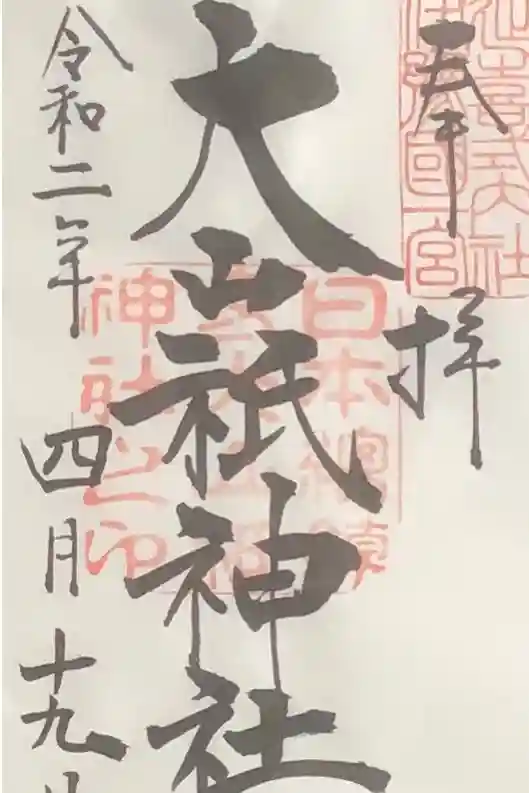 延喜式内社
伊豫國一宮
奉拝
日本總鎮
神社之印
大山祇神社
令和二年四月十九日